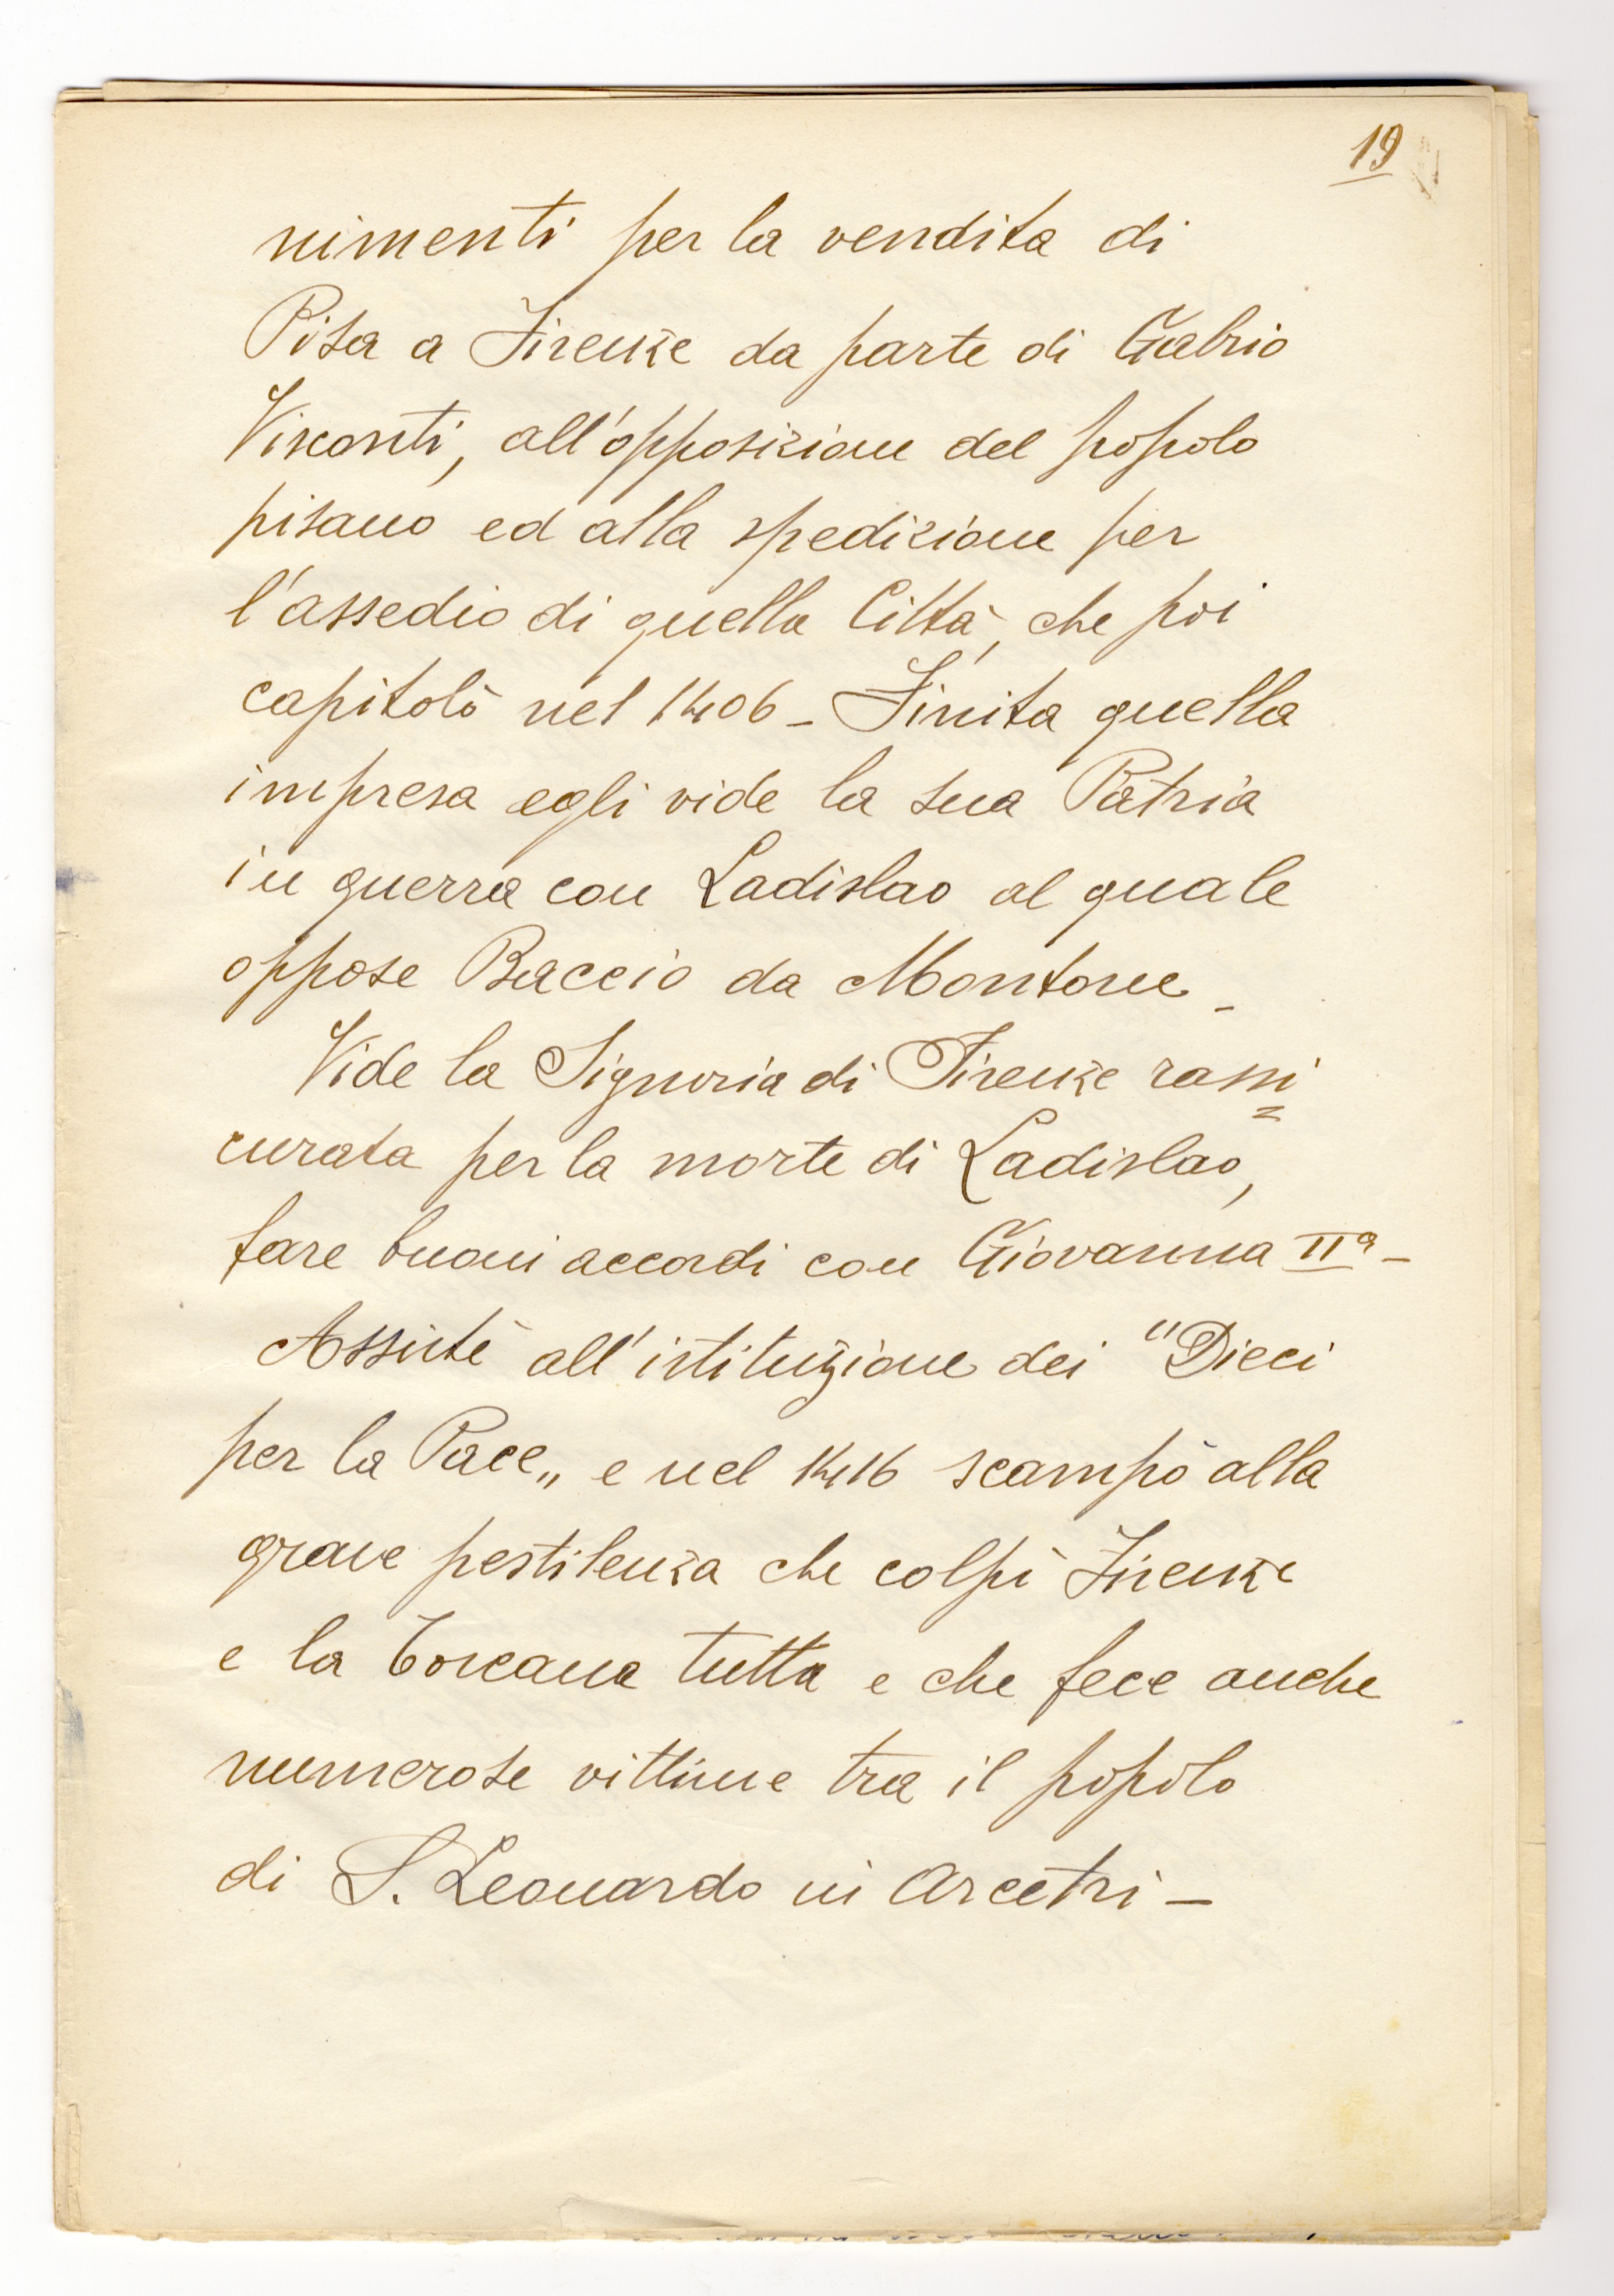 19
nimenti per la vendita di
Pisa a Firenze da parte di Gabrio
Visconti, all'opposizione del popolo
pisano ed alla spedizione per
l'assedio di quella Città, che poi
capitolò nel 1406 - Finita quella
impresa egli vide la sua Patria
in guerra con Ladislao al quale
oppose Baccio da Montone -
Vide la Signoria di Firenze rassi=
curata per la morte di Ladislao,
fare buoni accordi con Giovanna IIª -
Assistè all'istituzione dei "Dieci
per la Pace„ e nel 1416 scampò alla
grave pestilenza che colpì Firenze
e la Toscana tutta e che fece anche
numerose vittime tra il popolo
di S. Leonardo in Arcetri -